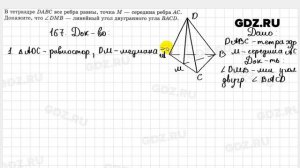 GDZ.RU
В тетраэдре DABC все ребра равны, точка M — середина ребра AC.
Докажите, что ∠DMB — линейный угол двугранного угла BACD.
GDZ.RU
167. Док-во
1. ΔADC-равностор, DM-медиана
D
A
B
M
C
Дано
DABC-тетраэдр
M-середина AC
Док-ть
∠DMB-лин. угол
двугр ∠BACD